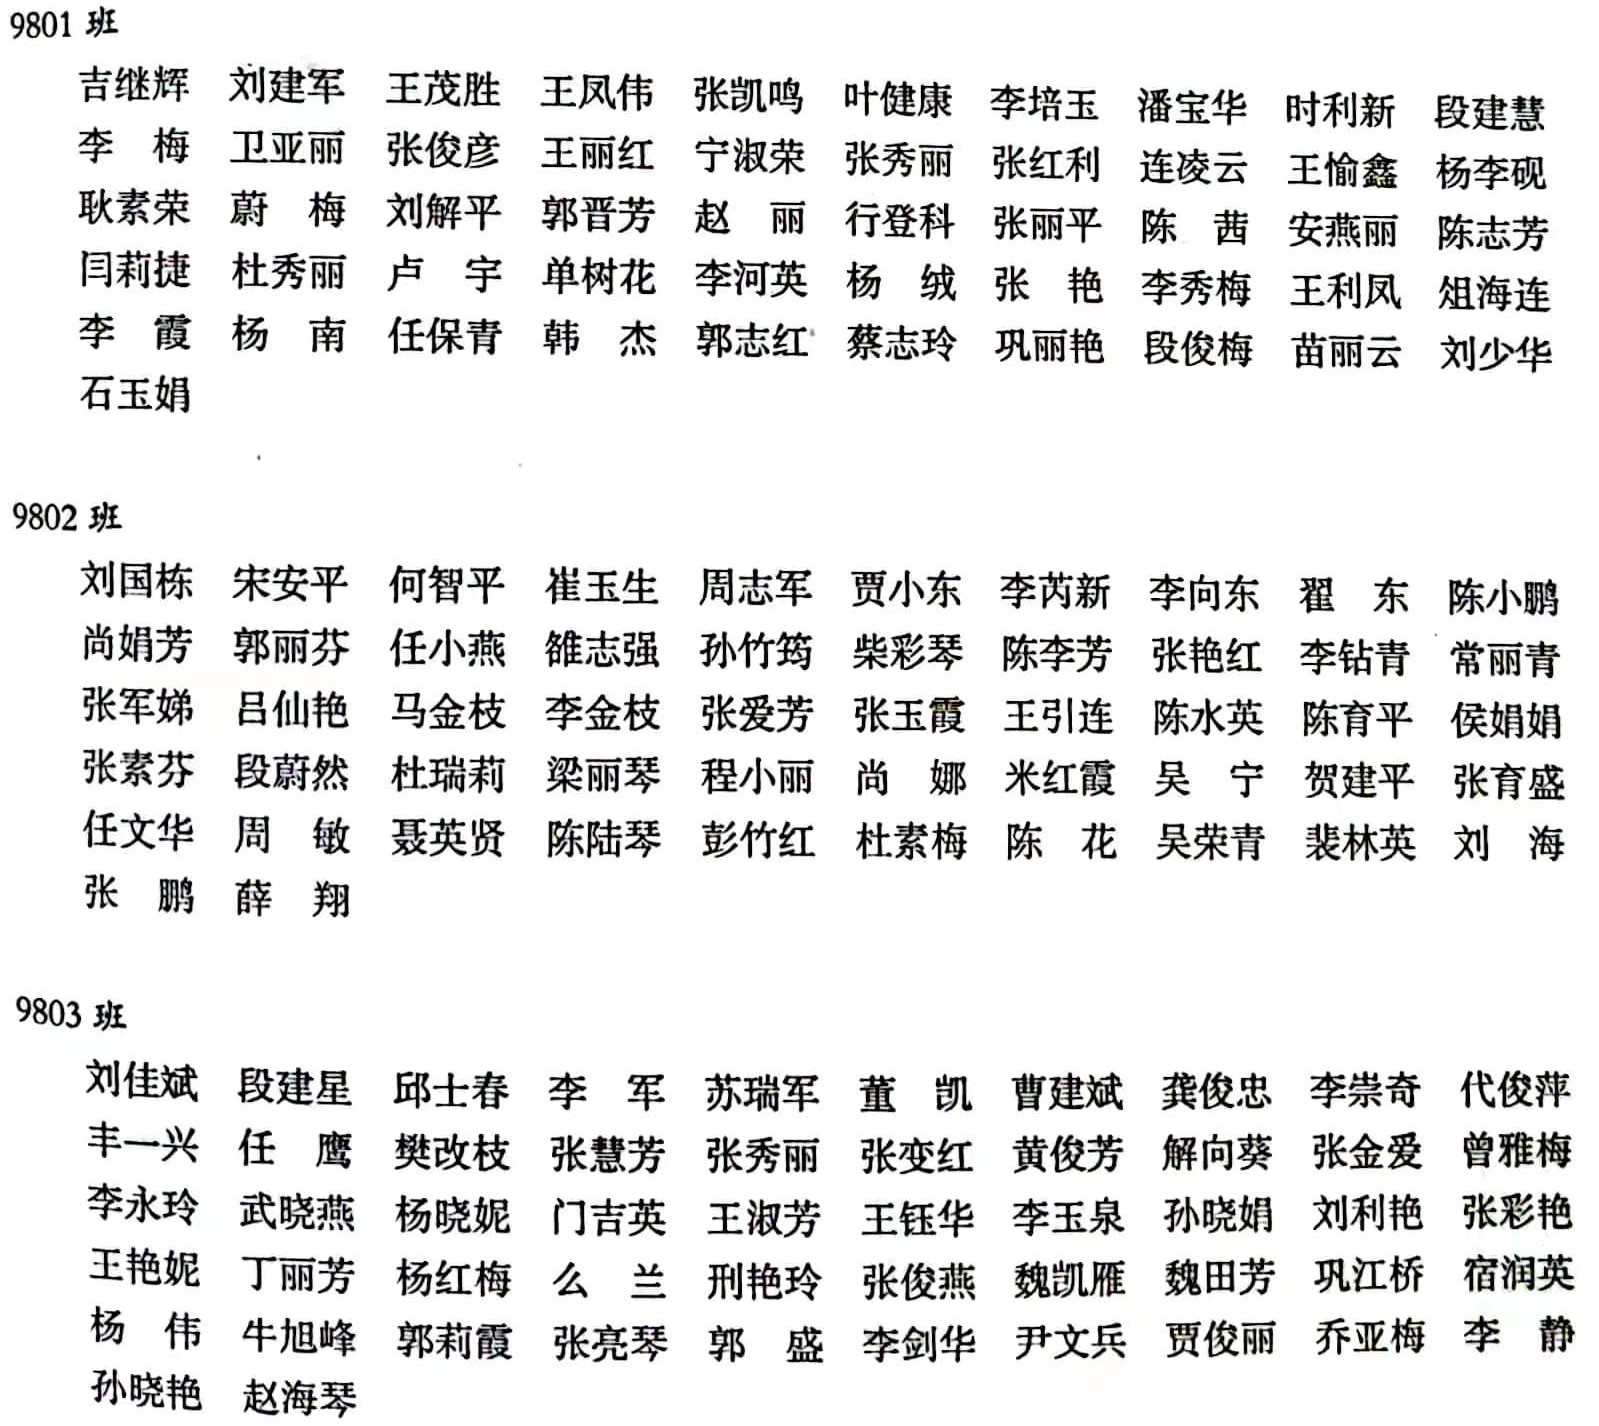 9801 班
吉继辉 刘建军 王茂胜 王凤伟 张凯鸣 叶健康 李培玉 潘宝华 时利新 段建慧
李 梅 卫亚丽 张俊彦 王丽红 宁淑荣 张秀丽 张红利 连凌云 王愉鑫 杨李砚
耿素荣 蔚 梅 刘解平 郭晋芳 赵 丽 行登科 张丽平 陈 茜 安燕丽 陈志芳
闫莉捷 杜秀丽 卢 宇 单树花 李河英 杨 绒 张 艳 李秀梅 王利凤 俎海连
李 霞 杨 南 任保青 韩 杰 郭志红 蔡志玲 巩丽艳 段俊梅 苗丽云 刘少华
石玉娟
9802 班
刘国栋 宋安平 何智平 崔玉生 周志军 贾小东 李芮新 李向东 翟 东 陈小鹏
尚娟芳 郭丽芬 任小燕 雒志强 孙竹筠 柴彩琴 陈李芳 张艳红 李钻青 常丽青
张军娣 吕仙艳 马金枝 李金枝 张爱芳 张玉霞 王引连 陈水英 陈育平 侯娟娟
张素芬 段蔚然 杜瑞莉 梁丽琴 程小丽 尚 娜 米红霞 吴 宁 贺建平 张育盛
任文华 周 敏 聂英贤 陈陆琴 彭竹红 杜素梅 陈 花 吴荣青 裴林英 刘 海
张 鹏 薛 翔
9803 班
刘佳斌 段建星 邱士春 李 军 苏瑞军 董 凯 曹建斌 龚俊忠 李崇奇 代俊萍
丰一兴 任 鹰 樊改枝 张慧芳 张秀丽 张变红 黄俊芳 解向葵 张金爱 曾雅梅
李永玲 武晓燕 杨晓妮 门吉英 王淑芳 王钰华 李玉泉 孙晓娟 刘利艳 张彩艳
王艳妮 丁丽芳 杨红梅 么 兰 刑艳玲 张俊燕 魏凯雁 魏田芳 巩江桥 宿润英
杨 伟 牛旭峰 郭莉霞 张亮琴 郭 盛 李剑华 尹文兵 贾俊丽 乔亚梅 李 静
孙晓艳 赵海琴